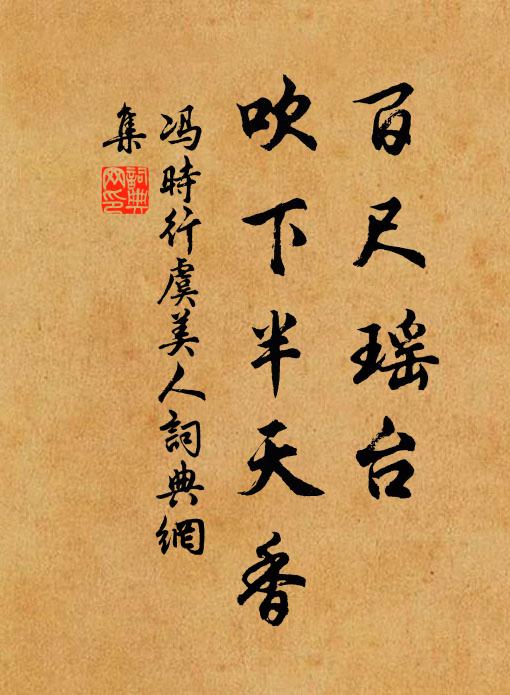 百尺瑶台
吹下半天香
冯時行虞美人詞典網
集
詞典網印